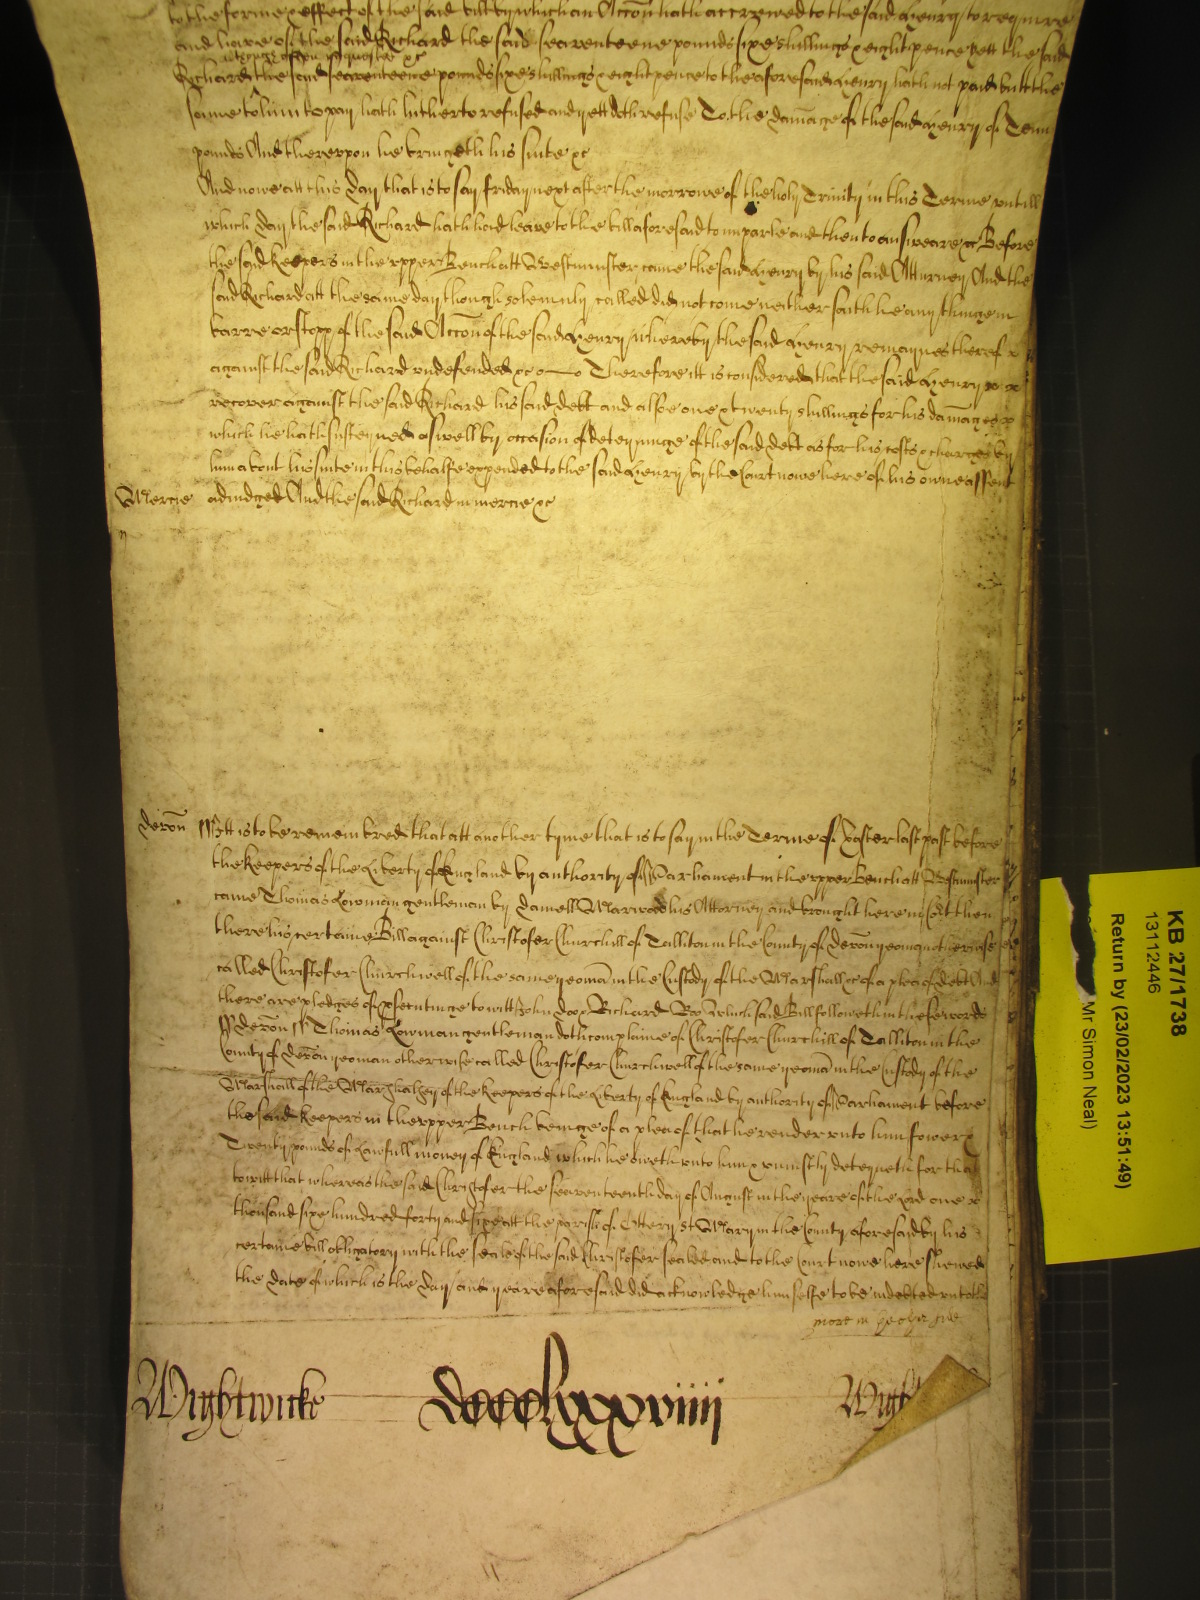 to the forme & effect of the said bill by which an Accon hath accrewed to the said Henry to require
and have of the said Richard the said seaventeene pounds sixe shillings & eight pence yett the said
although often requested &c
Richard the said seaventeene pounds sixe shillings & eight pence to the aforesaid Henry hath not paid butt the
same to him to pay hath hitherto refused and yett doth refuse To the damage of the said Henry of Tenn
pounds And thereupon he bringeth his suite &c
And nowe att this day that is to say friday next after the morrowe of the holy Trinity in this Terme untill
which day the said Richard hath had leave to the bill aforesaid to imparle and then to answeare &c Before
the said Keepers in the upper Bench att Westminster came the said Henry by his said Atturney And the
said Richard att the same day though solemnly called did not come neither saith he any thinge in
barre or stopp of the said Accon of the said Henry whereby the said Henry remaynes thereof
against the said Richard undefended &c Therefore itt is considered that the said Henry
recover against the said Richard his said debt and alsoe one & twenty shillings for his damages
which he hath susteyned aswell by occasion of deteyninge of the said debt as for his costs & charges by
him about his suite in this behalfe expended to the said Henry by the Court nowe here of his owne assent
Mercie adiudged And the said Richard in mercie &c
Devon Itt is to be remembred that att another tyme that is to say in the Terme of Easter last past before
the Keepers of the Liberty of England by authority of Parliament in the upper Bench att Westminster
came Thomas Lowman gentleman by Daniell Warwood his Attorney and brought here in Court then
there his certaine Bill against Christofer Churchill of Talliton in the County of Devon yeoman otherwise
called Christofer Churchwell of the same yeoman in the Custody of the Marshall &c of a plea of debt And
there are pledges of psecutinge to witt John Doo & Richard Roo which said Bill followeth in these words
ss Devon ss Thomas Lowman gentleman doth complaine of Christofer Churchill of Talliton in the
County of Devon yeoman otherwise called Christofer Churchwell of the same yeoman in the Custody of the
Marshall of the Marshalsey of the Keepers of the Liberty of England by authority of Parliament before
the said Keepers in the upper Bench beinge of a plea of that he render unto him fower &
Twenty pounds of Lawfull money of England which he oweth unto him & uniustly deteyneth for that
to witt that whereas the said Christofer the seaventeenth day of August in the yeare of the Lord one
thousand sixe hundred forty and sixe att the parish of Ottery St Mary in the County aforesaid by his
certaine bill obligatory with the seale of the said Christofer sealed and to the Court nowe here shewed
the date of which is the day and yeare aforesaid did acknowledge himselfe to be indebted unto the
more in the other side
Wightwicke dcccclxxxviiii Wigh
KB 27/1738
13112446
Return by (23/02/2023 13:51:49)
Mr Simon Neal)